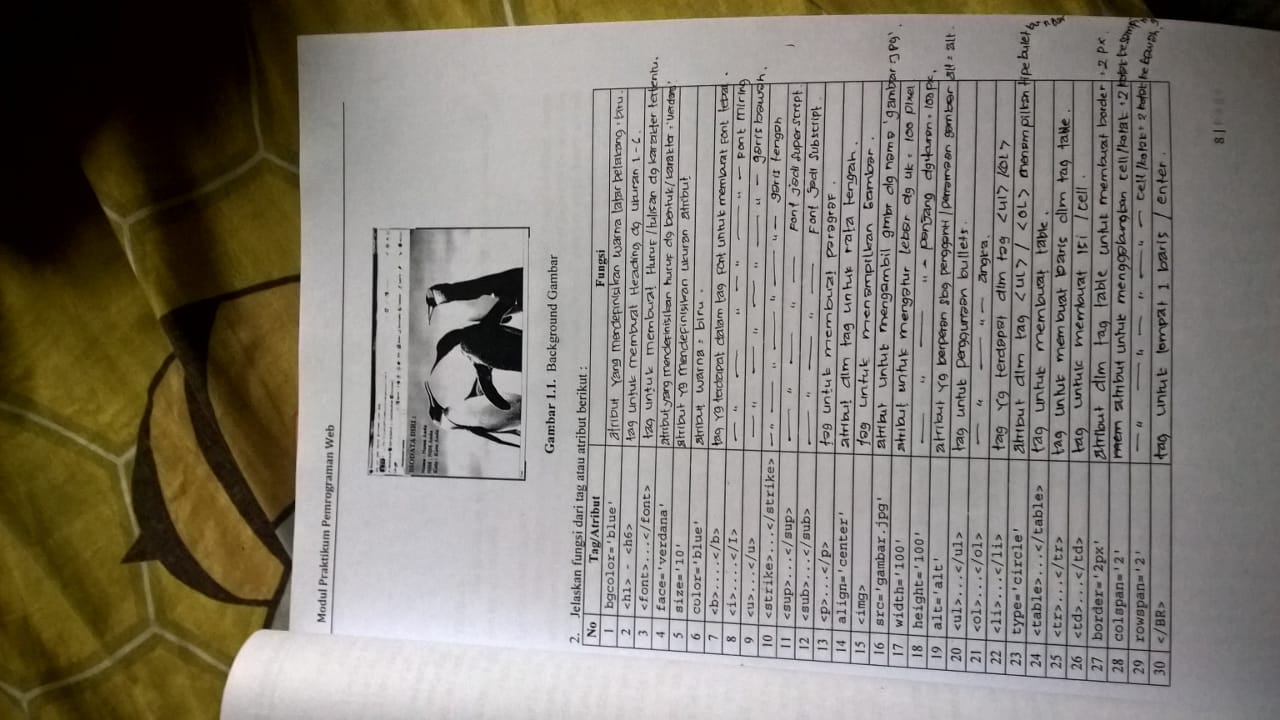 Modul Praktikum Pemrograman Web
BIODATA DIRI :
Gambar 1.1. Background Gambar
2. Jelaskan fungsi dari tag atau atribut berikut :
No Tag/Atribut Fungsi
1 bgcolor='blue' atribut yang mendepinisikan warna latar belakang = biru.
2 <h1> - <h6> tag untuk membuat Heading dg ukuran 1-6.
3 <font>...</font> tag untuk membuat Huruf / tulisan dg karakter tertentu.
4 face='verdana' atribut yang mendepinisikan huruf dg bentuk/karakter 'verdana'
5 size='10' atribut yg mendepinisikan ukuran atribut
6 color='blue' atribut warna = biru.
7 <b>....</b> tag yg terdapat dalam tag font untuk membuat font tebal.
8 <i>....</I> — " — " — " — " — font miring
9 <u>...</u> — " — " — " — " — garis bawah.
10 <strike>...</strike> — " — " — " — " — garis tengah
11 <sup>...</sup> — " — " — font jadi superstript.
12 <sub>...</sub> — " — " — font jadi substript.
13 <p>...</p> tag untuk membuat paragraf.
14 align='center' atribut dlm tag untuk rata tengah.
15 <img> tag untuk menampilkan gambar.
16 src='gambar.jpg' atribut untuk mengambil gmbr dg nama 'gambar.jpg'.
17 width='100' atribut untuk mengatur lebar dg uk = 100 pixel
18 height='100' — " — " — panjang dg ukuran = 100 px.
19 alt='alt' atribut yg berperan sbg pengganti / penamaan gambar alt = alt.
20 <ul>...</ul> tag untuk penggunaan bullets.
21 <ol>...</ol> — " — " — angka.
22 <li>...</li> tag yg terdapat dlm tag <ul> / <ol>
23 type='circle' atribut dlm tag <ul> / <ol> menampilkan tipe bulet
24 <table>...</table> tag untuk membuat table.
25 <tr>...</tr> tag untuk membuat baris dlm tag table.
26 <td>...</td> tag untuk membuat isi / cell.
27 border='2px' atribut dlm tag table untuk membuat border = 2 px.
28 colspan='2' mem atribut untuk menggabungkan cell/kotak = 2 kotak ke samping
29 rowspan='2' — " — " — " — cell/kotak = 2 kotak ke bawah.
30 </BR> tag untuk lompat 1 baris / enter.
8 | Page